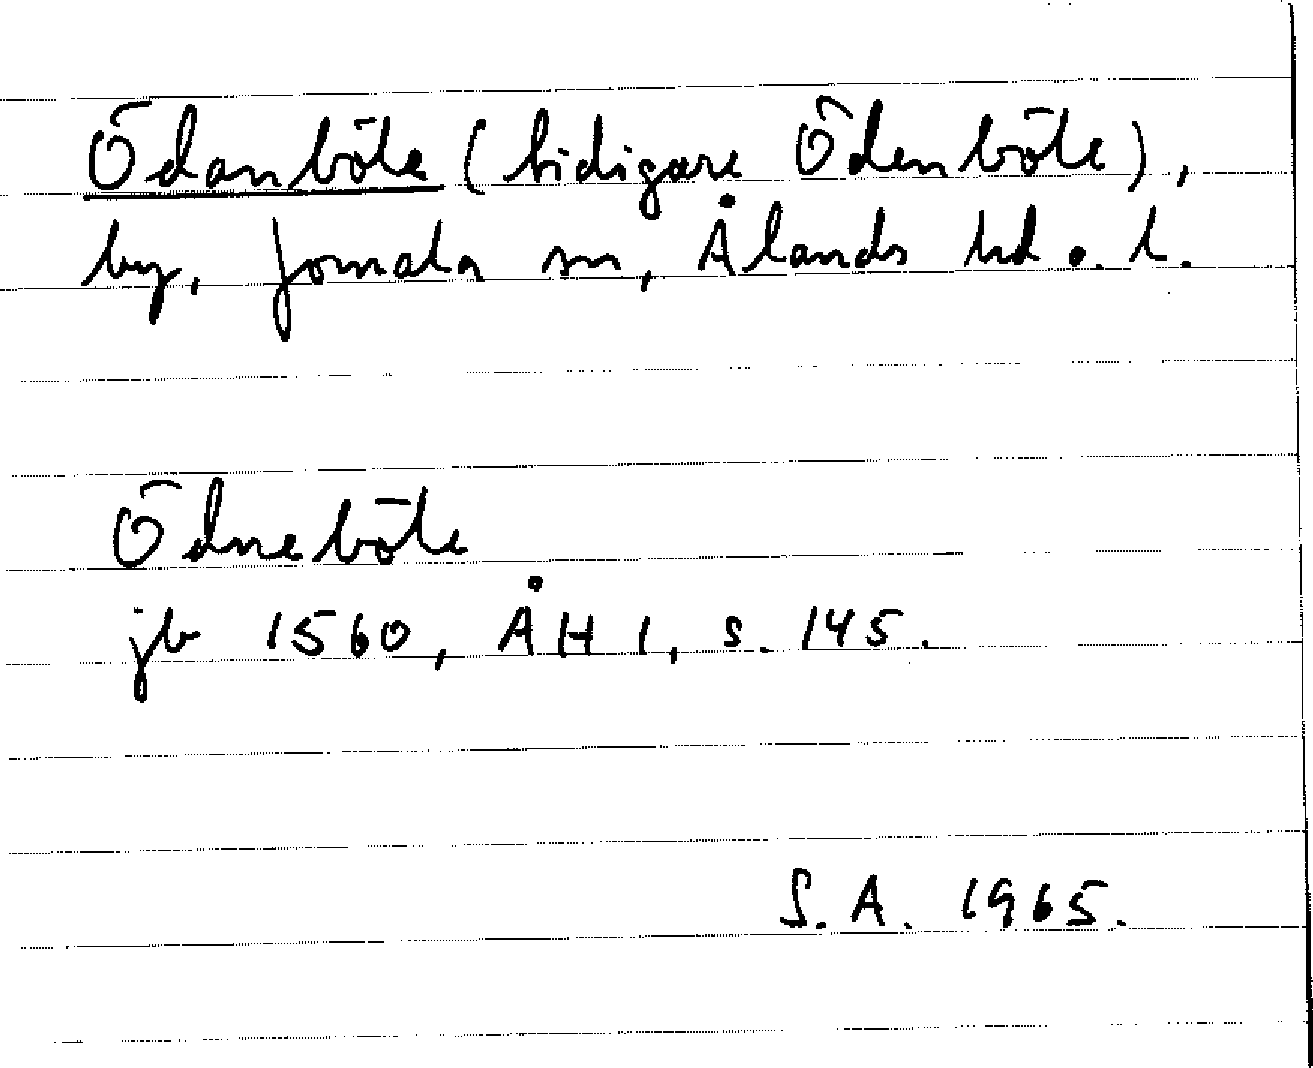 Ödanböle (tidigare Ödenböle),
by, Jomala sn, Ålands hd o. l.
Ödneböle
jb 1560, ÅH 1, s. 145.
S.A. 1965.